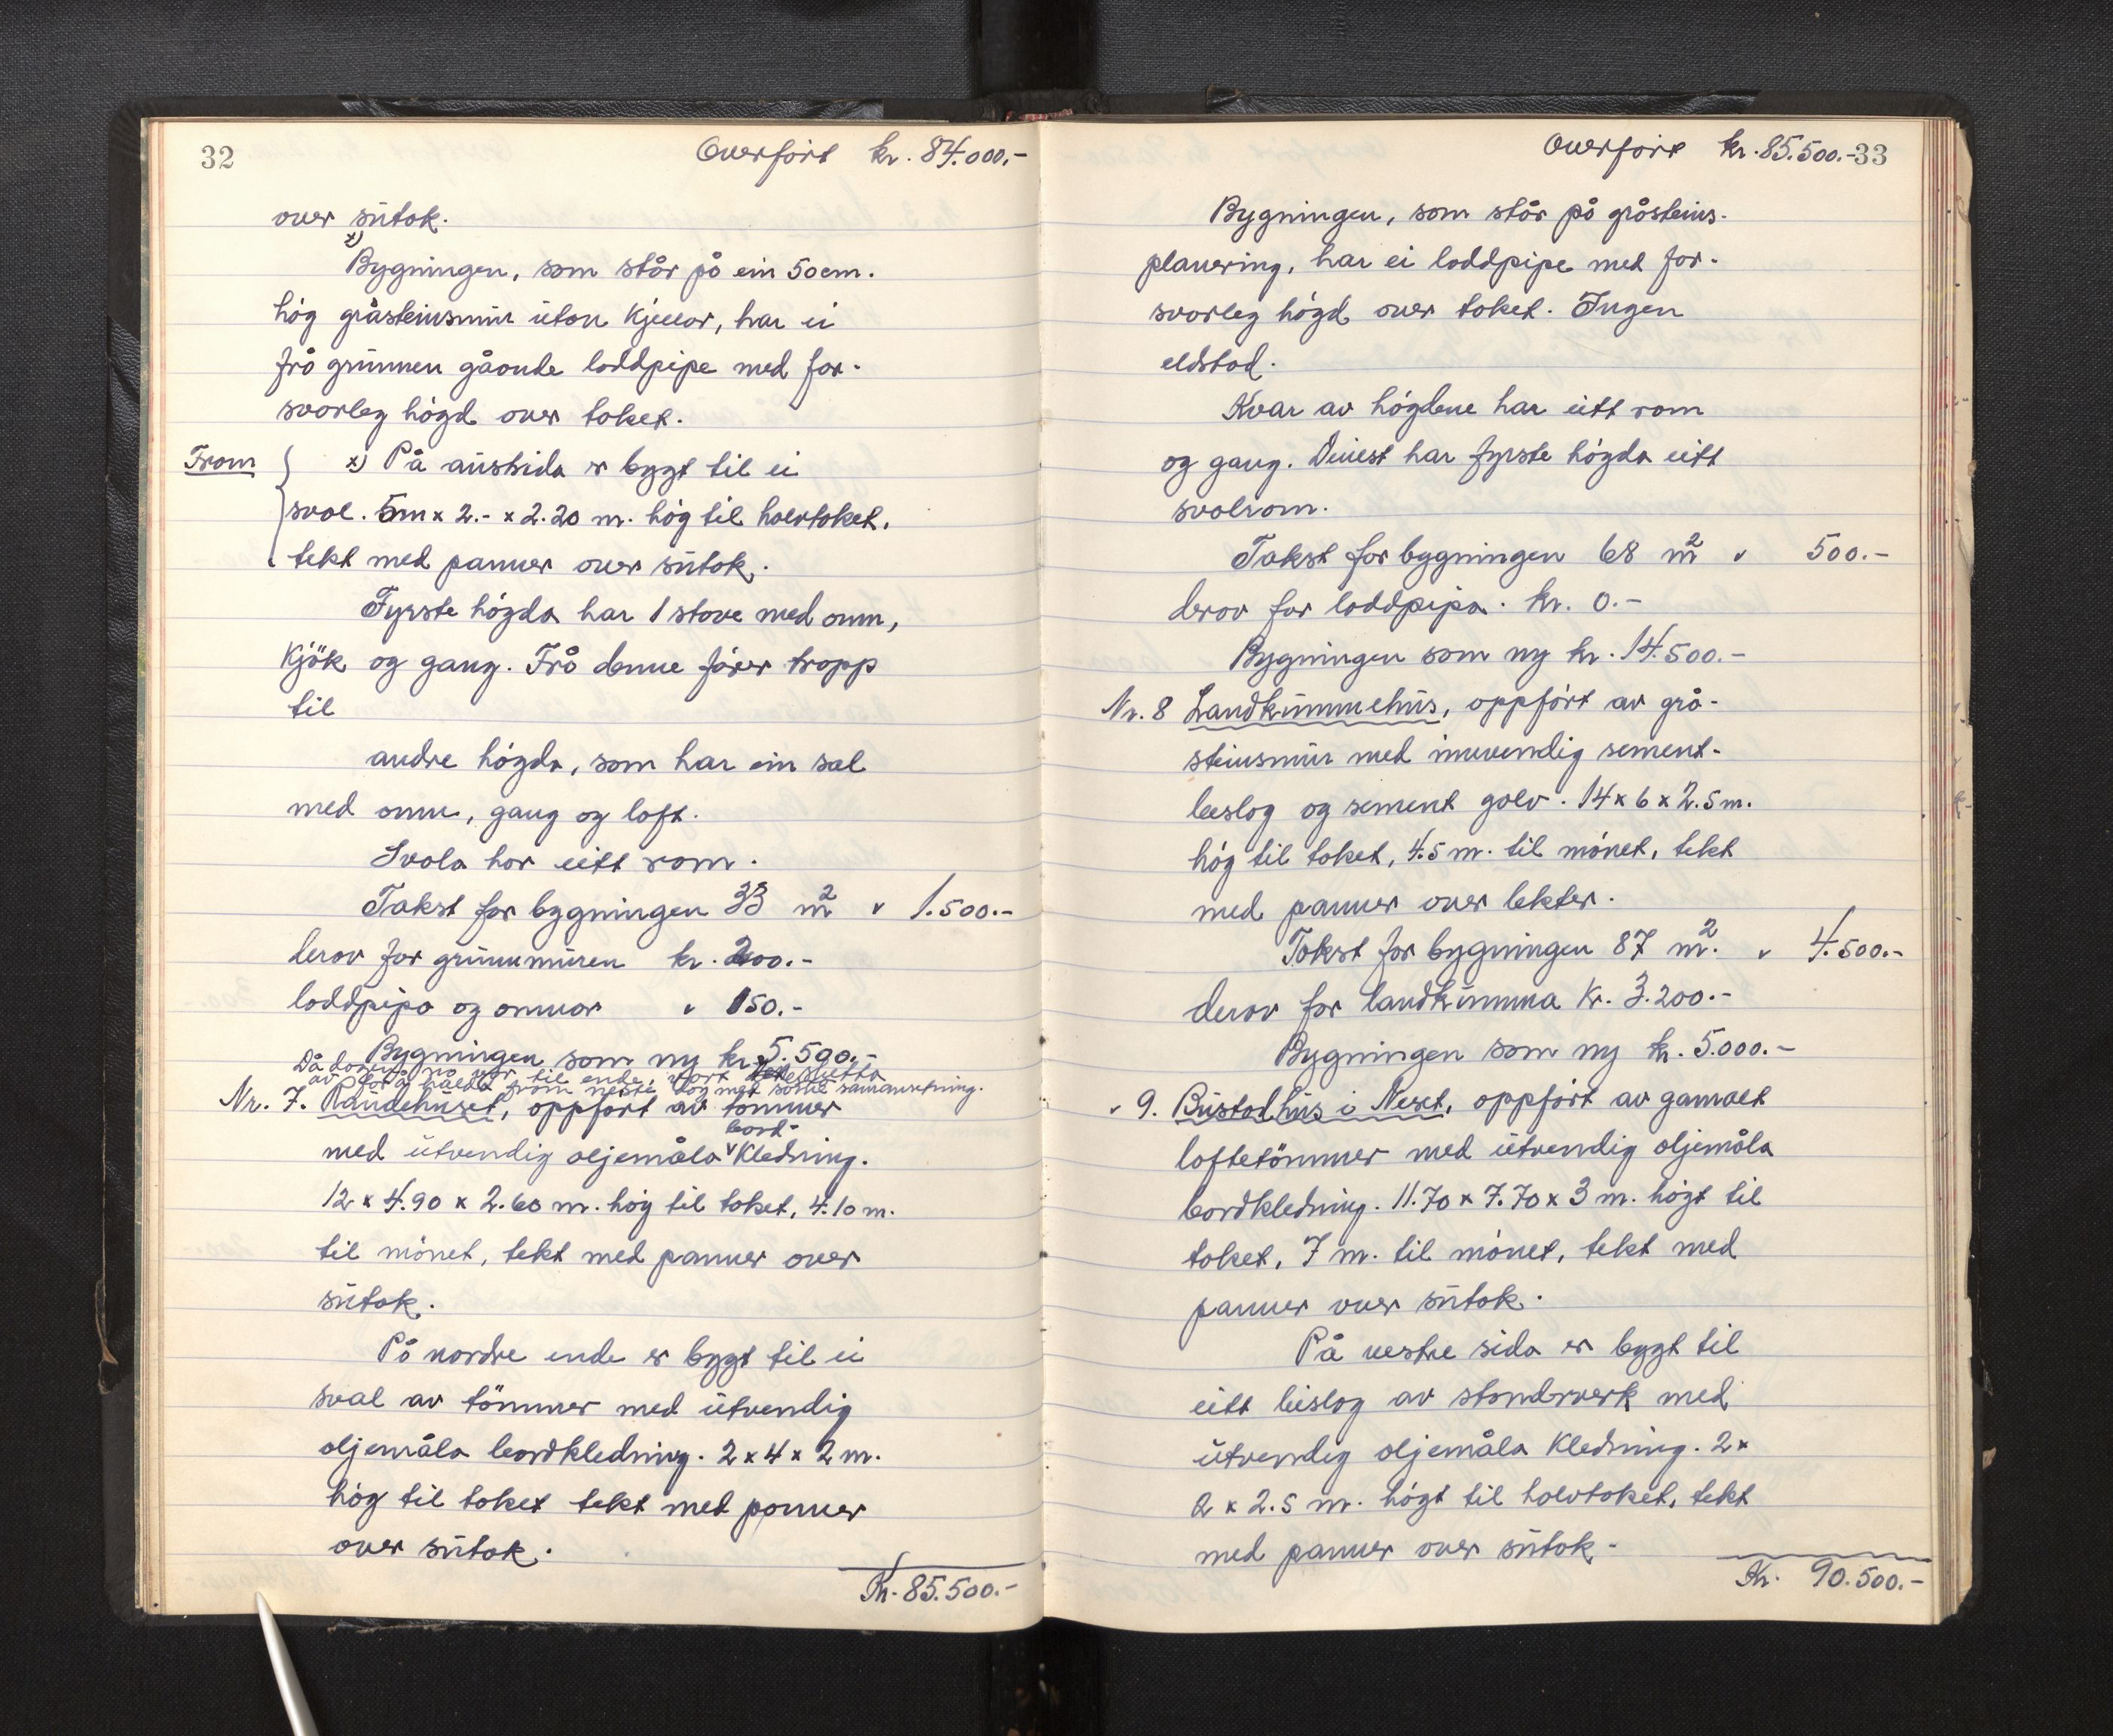 32
Overført kr. 84.000.-
over sutak.
x)
Bygningen, som står på ein 50 cm.
høg gråsteinsmur utan kjellar, har ei
frå grunnen gåande loddpipe med for-
svarleg høgd over taket.
Fram x) På austsida er bygt til ei
sval. 5m x 2.- x 2.20 m. høg til halvtaket,
tekt med panner over sutak.
Fyrste høgda har 1 stove med omn,
kjøk og gang. Frå denne fører tropp
til
andre høgda, som har ein sal
med omn, gang og loft.
Svala har eitt rom.
Takst for bygningen 33 m2 " 1.500.-
derav for grunnmuren kr. 200.-
loddpipa og omnar " 150.-
Bygningen som ny kr. 5.500.-
Då dagen no var til ende, vart
av for å halda fram neste dag med same samansetning.
Nr. 7. Raudehuset, oppført av tømmer
bord-
med utvendig oljemåla v kledning.
12 x 4.90 x 2.60 m. høg til taket, 4.10 m.
til mønet, tekt med panner over
sutak.
På nordre ende er bygt til ei
sval av tømmer med utvendig
oljemåla bordkledning. 2 x 4 x 2 m.
høg til taket tekt med panner
over sutak.
Kr. 85.500.-
Overført kr. 85.500.- 33
Bygningen, som står på gråsteins-
planering, har ei loddpipe med for-
svarleg høgd over taket. Ingen
eldstad.
Kvar av høgdene har eitt rom
og gang. Dinest har fyrste høgda eitt
svalrom.
Takst for bygningen 68 m2 " 500.-
derav for loddpipa. kr. 0.-
Bygningen som ny kr. 14.500.-
Nr. 8 Landkummehus, oppført av grå-
steinsmur med innvendig sement-
beslag og sement golv. 14 x 6 x 2.5 m.
høg til taket, 4.5 m. til mønet, tekt
med panner over lekter.
Takst for bygningen 87 m2. " 4.500.-
derav for landkumma Kr. 3.200.-
Bygningen som ny kr. 5.000.-
" 9. Bustadhus i Neset, oppført av gamalt
loftetømmer med utvendig oljemåla
bordkledning. 11.70 x 7.70 x 3 m. høgt til
taket, 7 m. til mønet, tekt med
panner over sutak.
På vestre sida er bygt til
eitt bislag av standrverk med
utvendig oljemåla kledning. 2 x
2 x 2.5 m. høgt til halvtaket, tekt
med panner over sutak.
Kr. 90.500.-